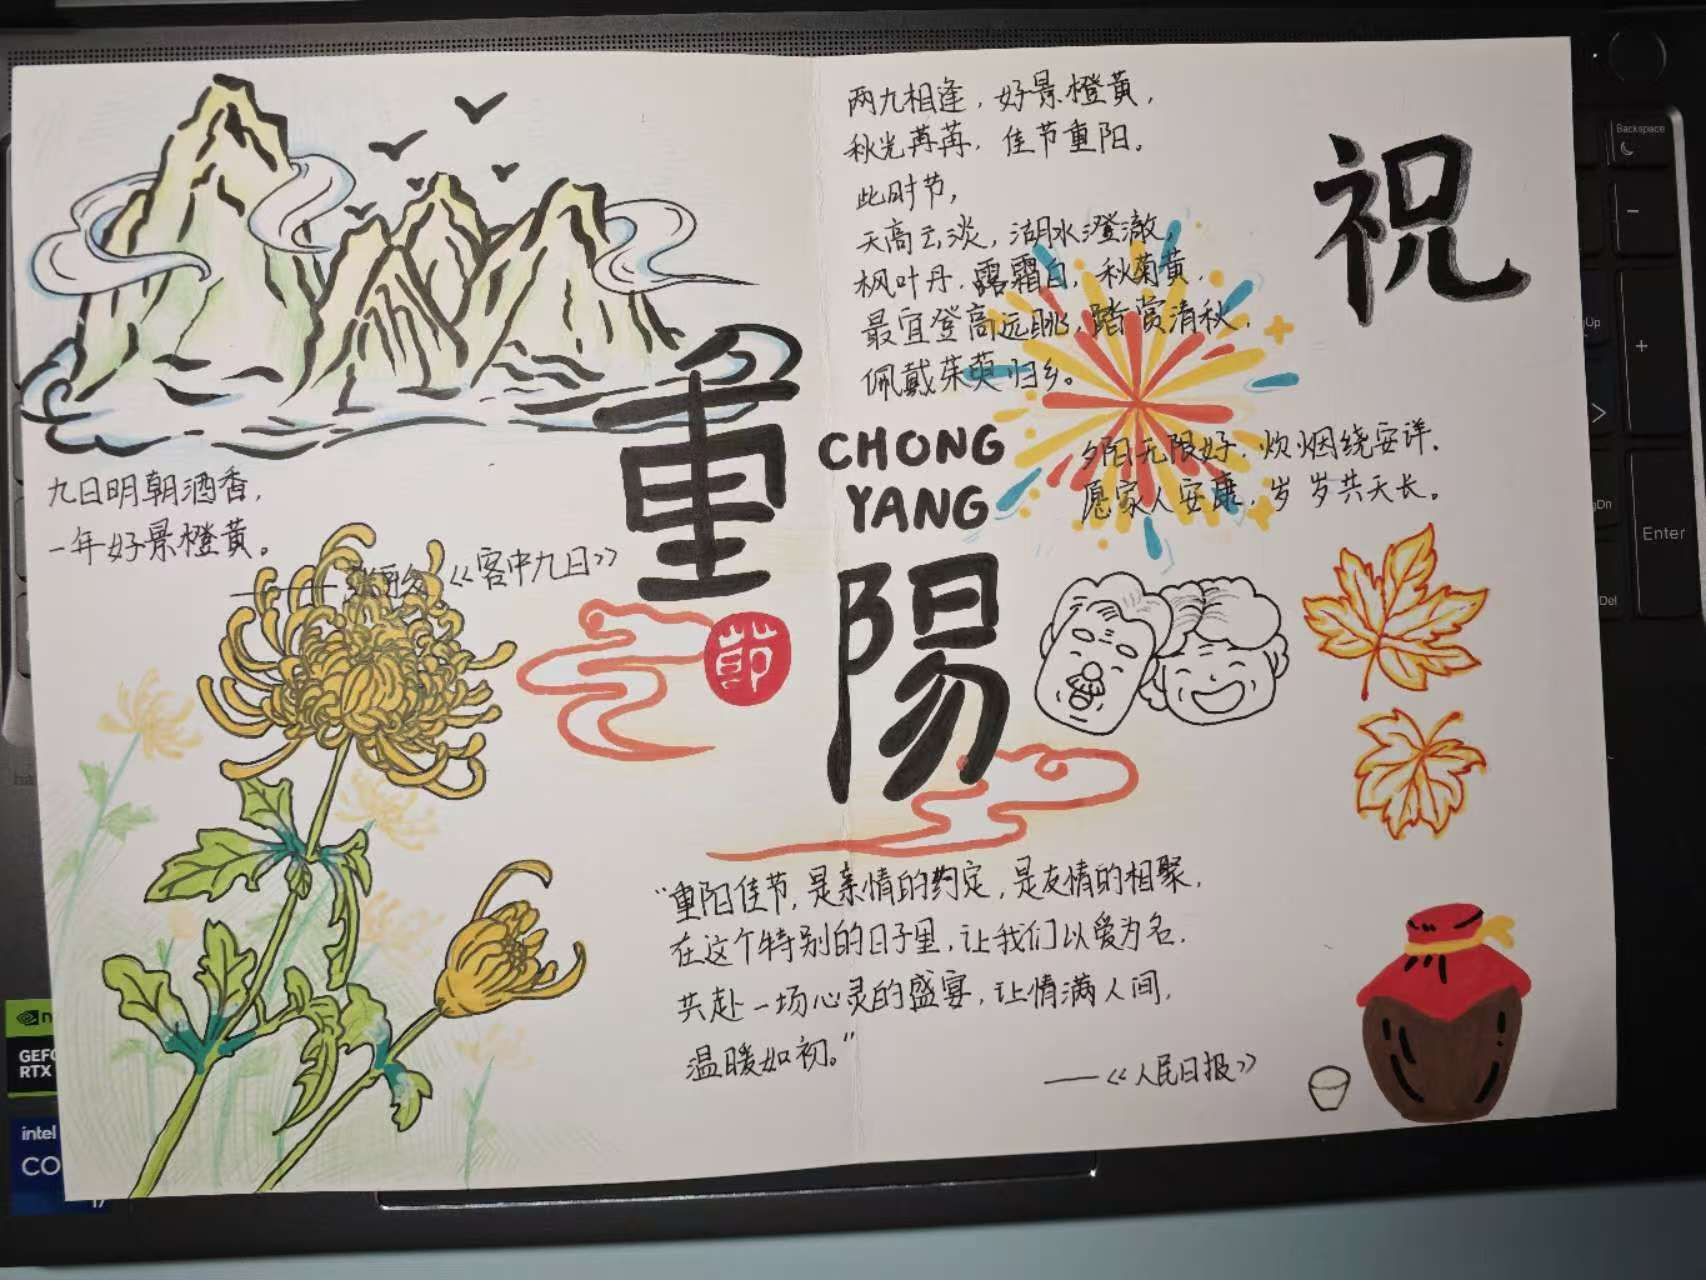 两九相逢，好景橙黄，
秋光苒苒，佳节重阳。
此时节，
天高云淡，湖水澄澈，
枫叶丹，露霜白，秋菊黄，
最宜登高远眺，踏赏清秋，
佩戴茱萸归乡。
祝
九日明朝酒香，
一年好景橙黄。
《客中九日》
重
CHONG
YANG
阳
節
夕阳无限好，炊烟绕安详，
愿家人安康，岁岁共天长。
“重阳佳节，是亲情的约定，是友情的相聚，
在这个特别的日子里，让我们以爱为名，
共赴一场心灵的盛宴，让情满人间，
温暖如初。”
——《人民日报》
Backspace
Enter
Del
intel
GEFO
RTX
CO
i7